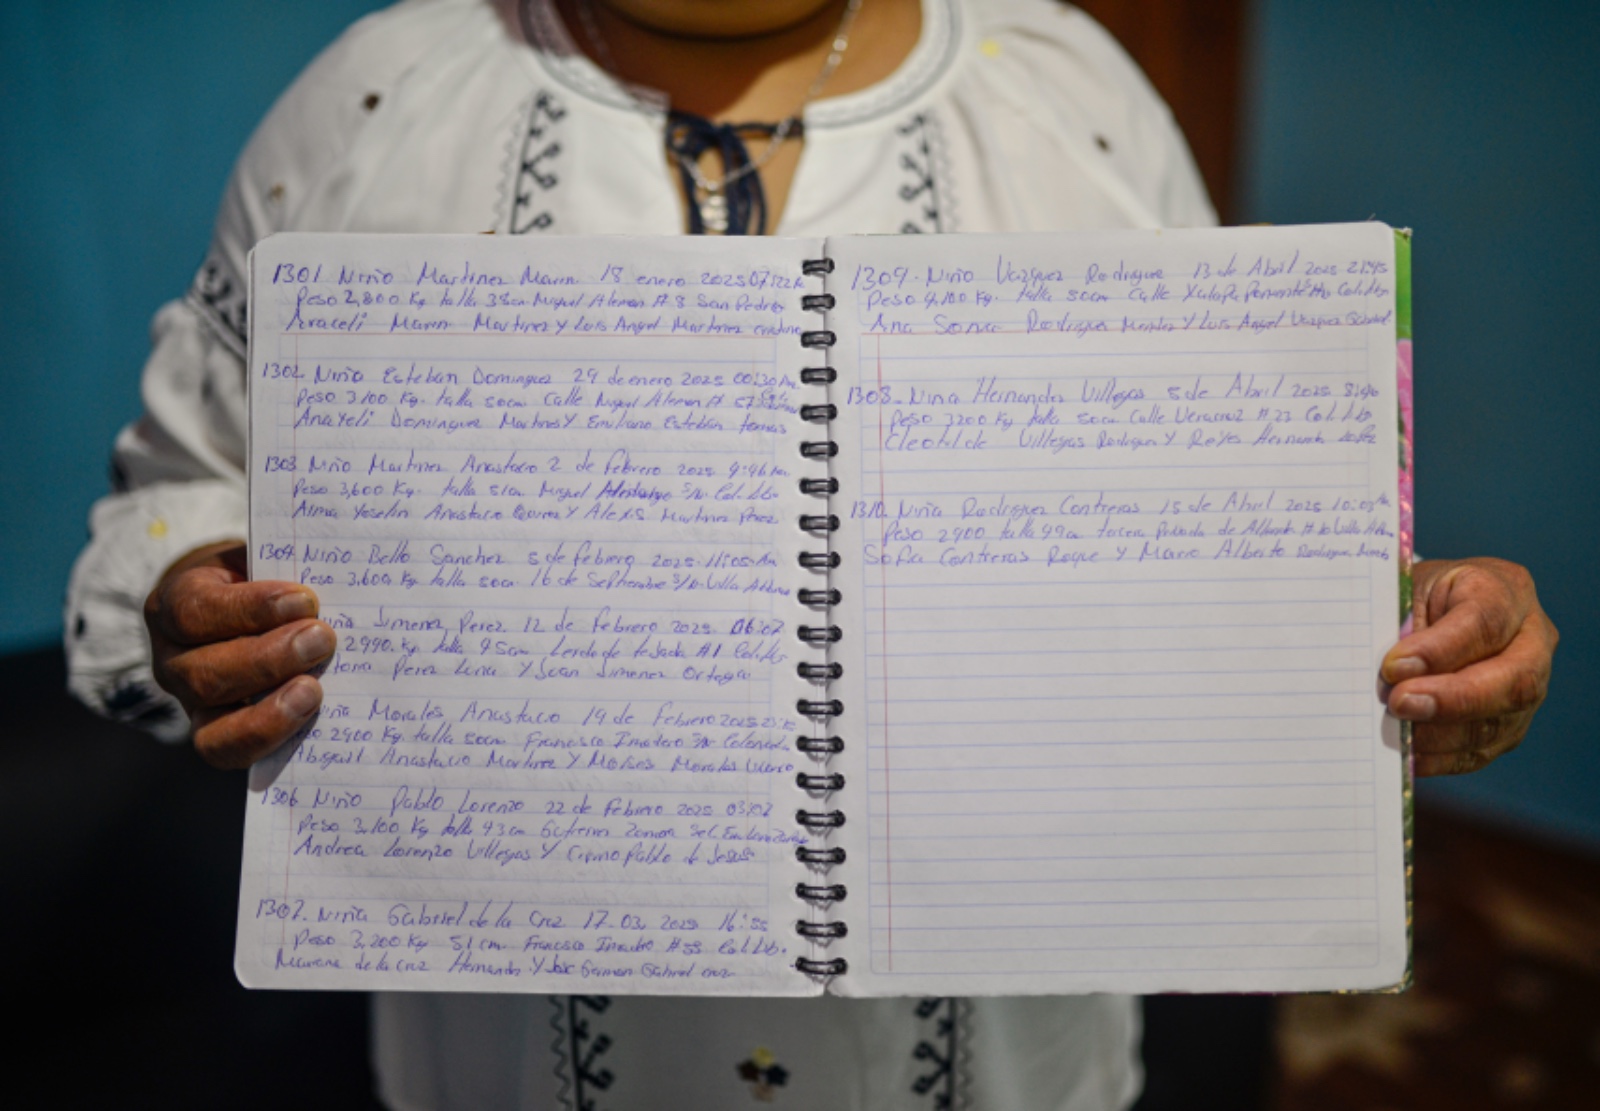 1301 Niño Martinez Marin 18 enero 2025 07:22 h
Peso 2,800 Kg talla 38cm Miguel Aleman # 8 San Pedro
Araceli Marin Martinez y Luis Angel Martinez
1302 Niña Esteban Dominguez 29 de enero 2025 00:30
Peso 3,100 Kg. talla 50cm Calle Miguel Aleman #
Anayeli Dominguez Martinez Y Emiliano Esteban tomas
1303 Niño Martinez Anastacio 2 de febrero 2025 9:46
Peso 3,600 Kg. talla 51cm Miguel S/N. Col. Lib.
Alma Yoselin Anastacio Y Alexis Martinez Perez
1304 Niño Bello Sanchez 5 de febrero 2025. 11:05 Am
Peso 3,600 Kg talla 50cm. 16 de Septiembre S/N. Villa
Jimenez Perez. 12 de febrero 2025. 06:07
2990. Kg. talla 45cm Lerdo de tejada #1 Col. Lib
Perez Luna Y Juan Jimenez Ortega
Morales Anastacio 19 de febrero 2025
2900 Kg. talla 50cm Francisco I madero S/N
Abigail Anastacio Martinez Y Moises Morales
1306 Niño Pablo Lorenzo 22 de febrero 2025 03:02
Peso 3,100 Kg talla 43cm Gutierrez Zamora
Andrea Lorenzo Villegas Y Pablo de Jesus
1307. Niña Gabriel de la Cruz 17.03. 2025 16:55
Peso 3,200 Kg 51 cm Francisco Imadero # Col. Lib.
de la cruz Hernandez Y Jose German Gabriel cruz
1309. Niño Vazquez Rodriguez 13 de Abril 2025 21:45
Peso 4,100 Kg. talla 50cm Calle Xalapa Col. Lib
Ana Rodriguez Mendez Y Luis Angel Vazquez Gabriel
1308. Nina Hernandez Villegas 5 de Abril 2025
Peso 3200 Kg talla 50cm Calle Veracruz # 23 Col. Lib
Cleotilde Villegas Rodriguez Y Reyes Hernandez
1310. Niña Rodriguez Contreras 15 de Abril 2025
Peso 2900 talla 49cm tercera Privada de # Villa
Sofia Contreras Roque y Mario Alberto Rodriguez